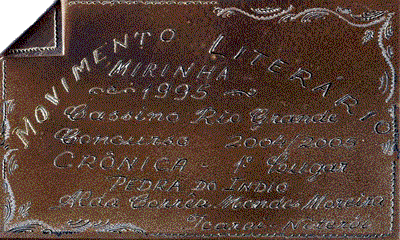 MOVIMENTO LITERÁRIO
MIRINHA
1995
Cassino Rio Grande
Concurso 2004/2005
CRÔNICA - 1º Lugar
PEDRA DO INDIO
Alda Corrêa Mendes Moreira
Icaraí - Niterói